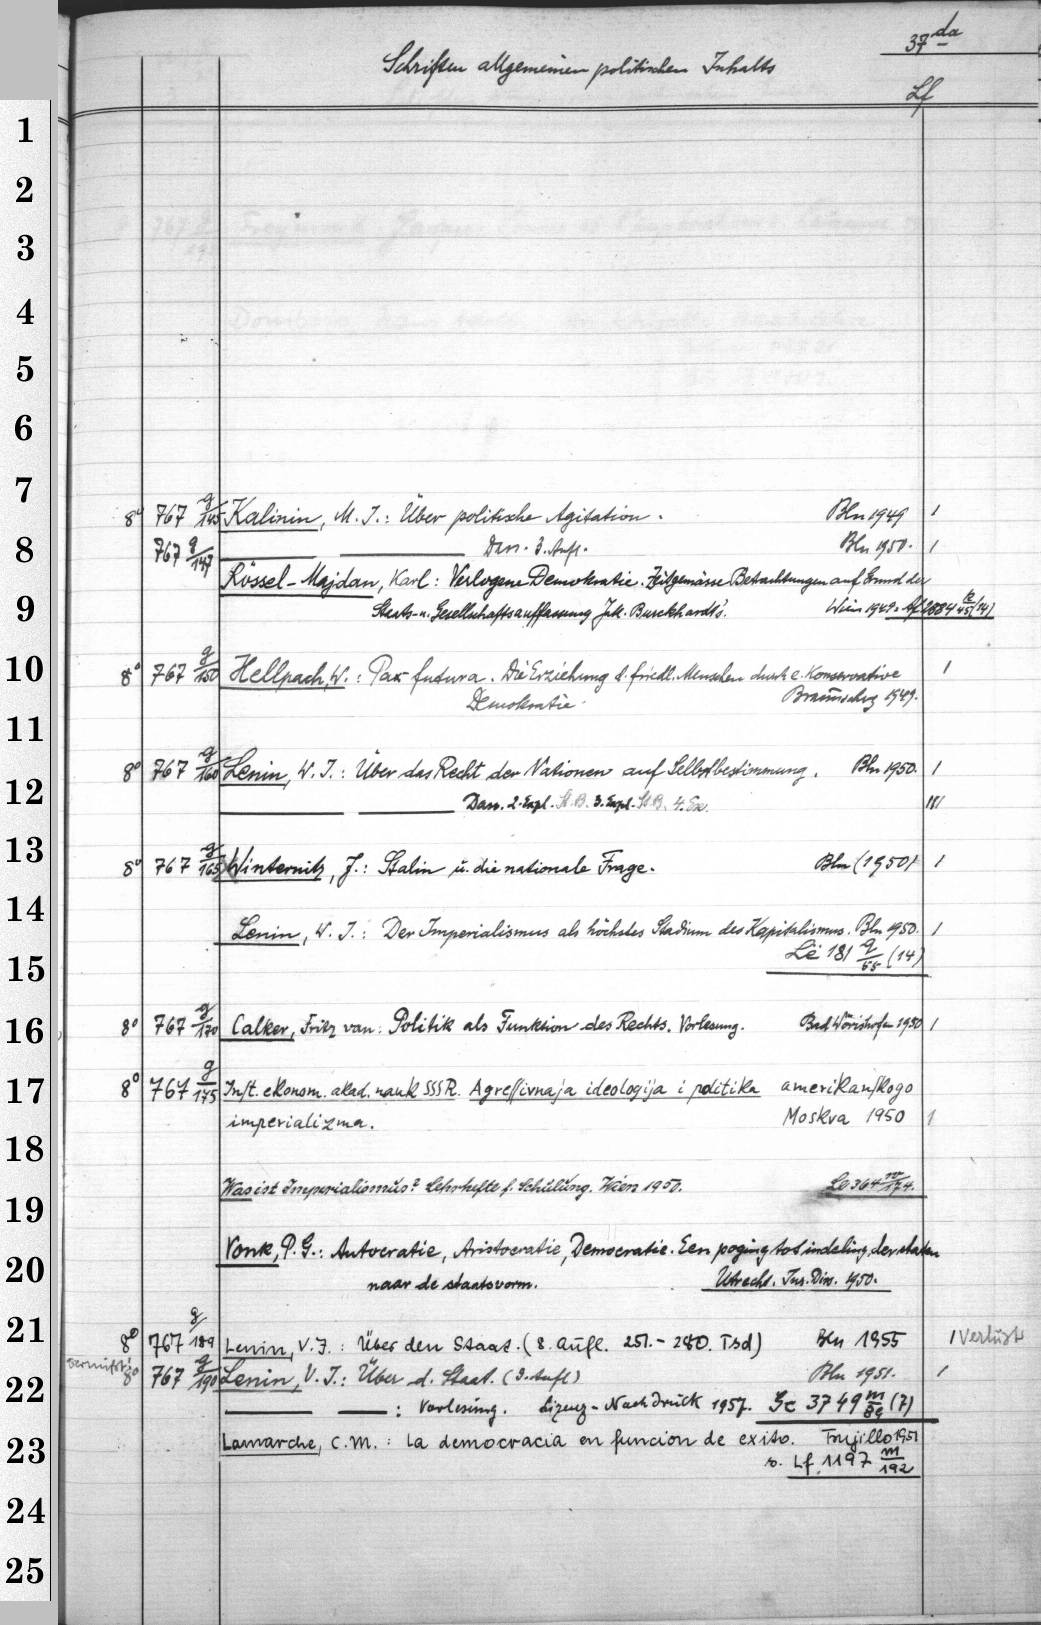 37 da
Schriften allgemeinen politischen Inhalts
Lf
1
2
3
4
5
6
7
8
9
10
11
12
13
14
15
16
17
18
19
20
21
22
23
24
25
8° 767 g/145 Kalinin, M. I.: Über politische Agitation. Bln 1949 1
767 g/147 —— —— Dass. 3. Aufl. Bln 1950. 1
Rössel-Majdan, Karl: Verlogene Demokratie. Zeitgemässe Betrachtungen auf Grund der
Staats- u. Gesellschaftsauffassung Jak. Burckhardt's. Wien 1949. Af 2884 k/45 (14)
8° 767 g/150 Hellpach, W.: Pax futura. Die Erziehung d. friedl. Menschen durch e. Konservative 1
Demokratie. Braunschwg 1949.
8° 767 g/160 Lenin, W. I.: Über das Recht der Nationen auf Selbstbestimmung. Bln 1950. 1
—— —— Dass. 2. Expl. St. B. 3. Expl. St. B. 4. Ex. III
8° 767 g/165 Winternitz, J.: Stalin u. die nationale Frage. Bln (1950) 1
Lenin, W. I.: Der Imperialismus als höchstes Stadium des Kapitalismus. Bln 1950. 1
Le 181 q/55 (14)
8° 767 g/170 Calker, Fritz van: Politik als Funktion des Rechts. Vorlesung. Bad Wörishofen 1950 1
8° 767 g/175 Inst. ekonom. akad. nauk SSSR. Agressivnaja ideologija i politika amerikanskogo
imperializma. Moskva 1950 1
Was ist Imperialismus? Lehrhefte f. Schulung. Wien 1950. Le 364 w/174.
Vonk, P. G.: Autocratie, Aristocratie, Democratie. Een poging tot indeling der staten
naar de staatsvorm. Utrecht. Jur. Diss. 1950.
8° 767 g/189 Lenin, V. I.: Über den Staat. (8. Aufl. 251.-280. Tsd) Bln 1955 1 Verlust
vermißt!
8° 767 g/190 Lenin, V. I.: Über d. Staat. (3. Aufl) Bln 1951. 1
—— ——: Vorlesung. Lizenz-Nachdruck 1957. Sc 3749 m/89 (7)
Lamarche, C. M.: La democracia en funcion de exito. Trujillo 1951
s. Lf 1197 m/192